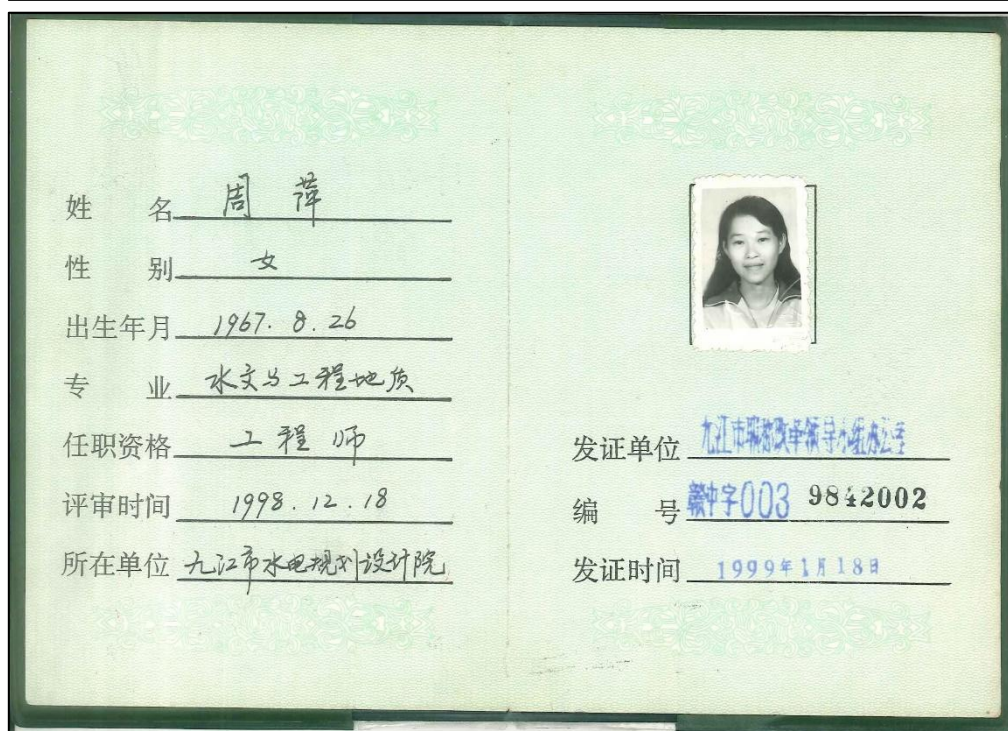 姓 名 周萍
性 别 女
出生年月 1967.8.26
专 业 水文与工程地质
任职资格 工程师
评审时间 1998.12.18
所在单位 九江市水电规划设计院
发证单位 九江市职称改革领导小组办公室
编 号 赣中字003 9842002
发证时间 1999年1月18日